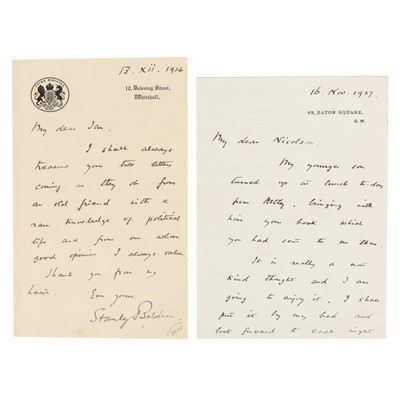 PRIME MINISTER
13. xii. 1936
10, Downing Street,
Whitehall.
My dear Ian,
I shall always
treasure your two letters
coming as they do from
an old friend with a
rare knowledge of political
life and from one whose
good opinion I always value.
Thank you from my
heart.
Ever yours
Stanley Baldwin
16 Nov. 1937.
69, EATON SQUARE,
S.W.
My dear Nicolson
My younger son
turned up at lunch to-day
from Astley, bringing with
him your book which
you had sent to me there.
It is really a most
kind thought and I am
going to enjoy it. I shall
put it by my bed and
look forward to each night